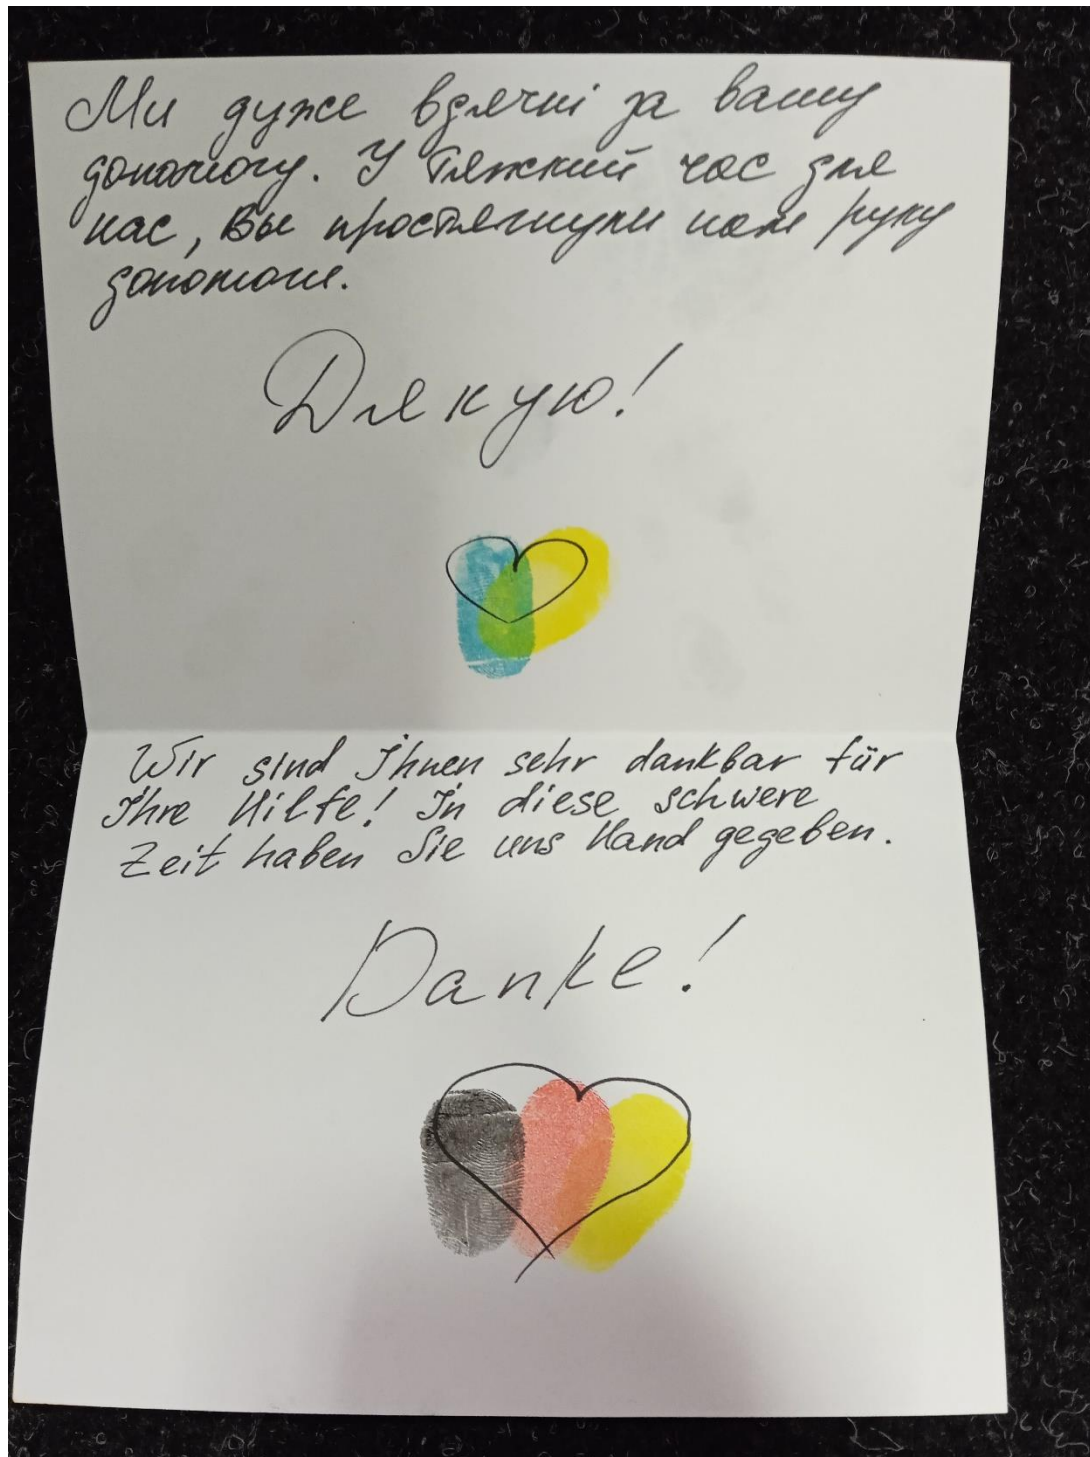 Ми дуже вдячні за вашу
допомогу. У тяжкий час для
нас, Вы простягнули нам руку
допомоги.
Дякую!
Wir sind Ihnen sehr dankbar für
Ihre Hilfe! In diese schwere
Zeit haben Sie uns Hand gegeben.
Danke!